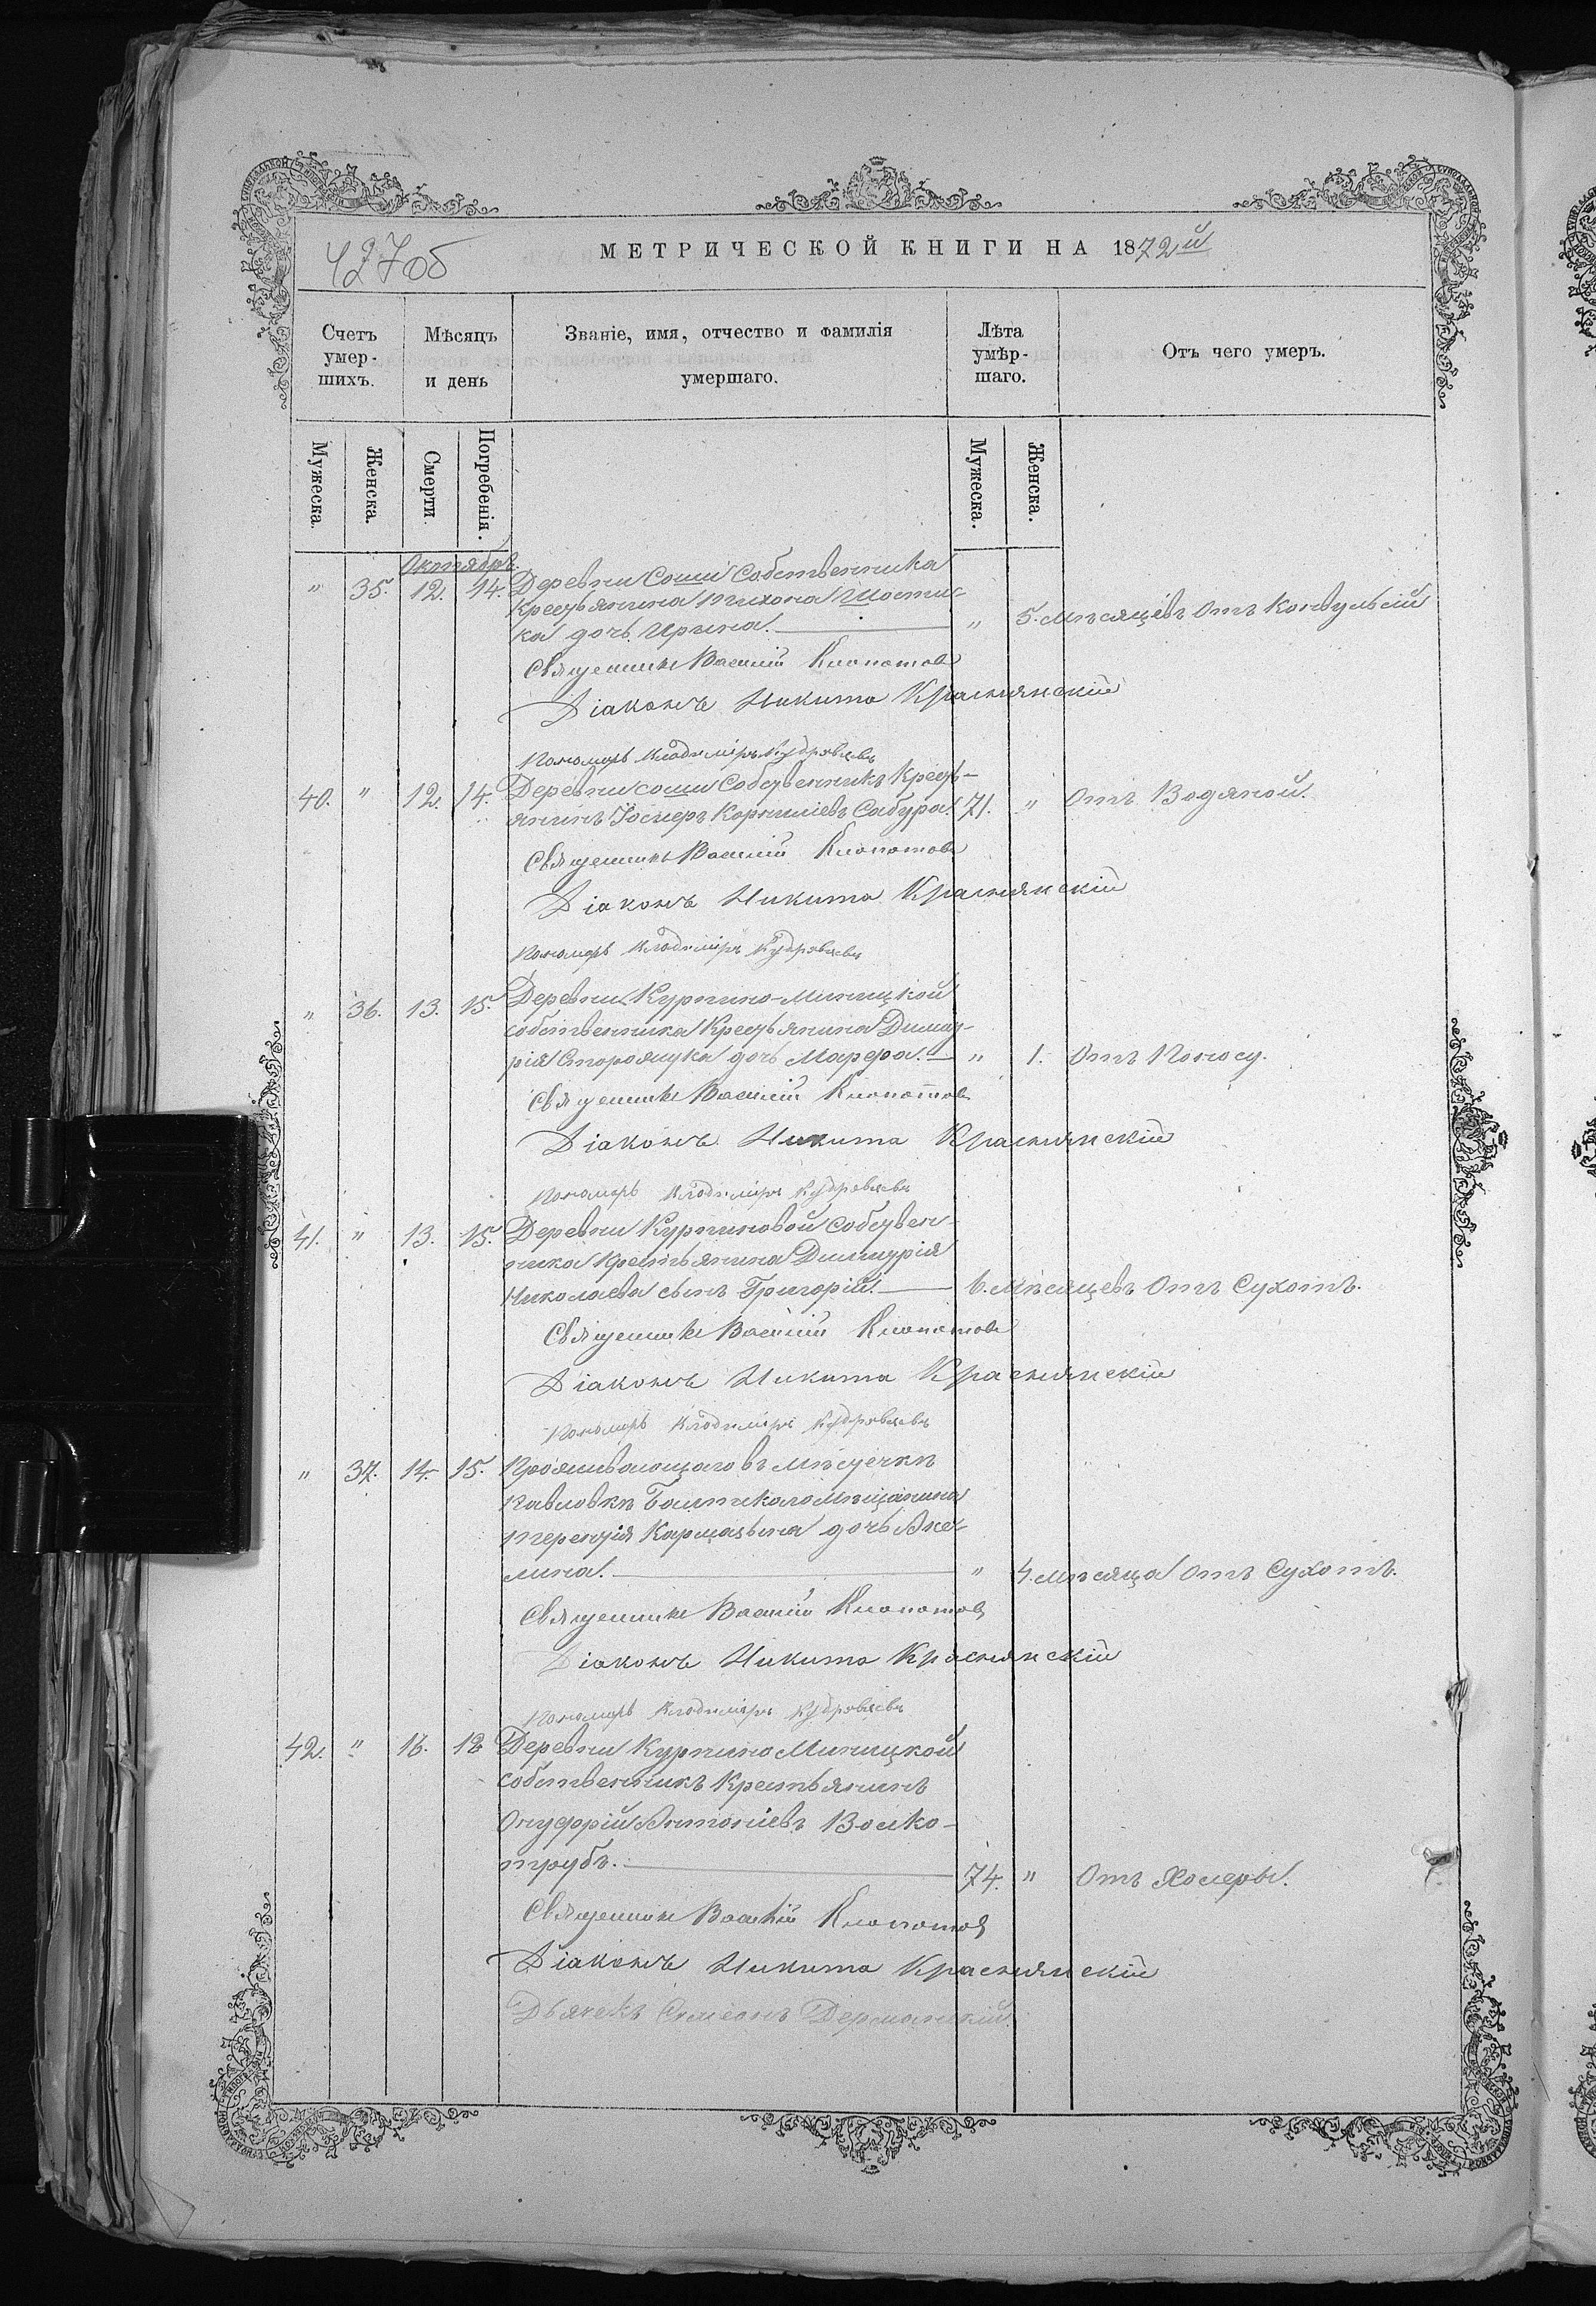 427об
МЕТРИЧЕСКОЙ КНИГИ НА 1872й
Счетъ умер-шихъ.
Мѣсяцъ и день
Званіе, имя, отчество и фамилія умершаго.
Лѣта умѣр-шаго.
Отъ чего умеръ.
Мужеска.
Женска.
Смерти.
Погребенія.
Мужеска.
Женска.
Октябрь.
" 35. 12. 14. Деревни Соши Собственника
Крестьянина Тихона
ка дочь Ирина. " 5. мѣсяцевъ Отъ Конвульсій
Священникъ Василій Клопотовъ
Діаконъ Никита Краснянскій
Пономарь Владиміръ Кудрявцевъ
40. " 12. 14. Деревни Соши Собственникъ Кресть-
янинъ Корниліевъ Сабура. 71. " Отъ Водяной.
Священникъ Василій Клопотовъ
Діаконъ Никита Краснянскій
Пономарь Владиміръ Кудрявцевъ
" 36. 13. 15. Деревни Курпино-Миницкой
собственника Крестьянина Димит-
рія Сторожука дочь Марфа. " 1. Отъ Поносу.
Священникъ Василій Клопотовъ
Діаконъ Никита Краснянскій
Пономарь Владиміръ Кудрявцевъ
41. " 13. 15. Деревни Курпиновой Собствен-
ника Крестьянина Димитрія
Николаева сынъ Григорій. 6. Мѣсяцевъ Отъ Сухотъ.
Священникъ Василій Клопотовъ
Діаконъ Никита Краснянскій
Пономарь Владиміръ Кудрявцевъ
" 37. 14. 15. Проживающаго въ мѣстечкѣ
Павловкѣ мѣщанина
Терентія дочь Аке-
лина. " 4. мѣсяца Отъ Сухотъ.
Священникъ Василій Клопотовъ
Діаконъ Никита Краснянскій
Пономарь Владиміръ Кудрявцевъ
42. " 16. 18 Деревни Курпино Миницкой
собственникъ Крестьянинъ
Онуфрій Антоніевъ Волко-
трубъ. 74. " Отъ Холеры.
Священникъ Василій Клопотовъ
Діаконъ Никита Краснянскій
Дьячекъ Симеонъ Дерманскій.